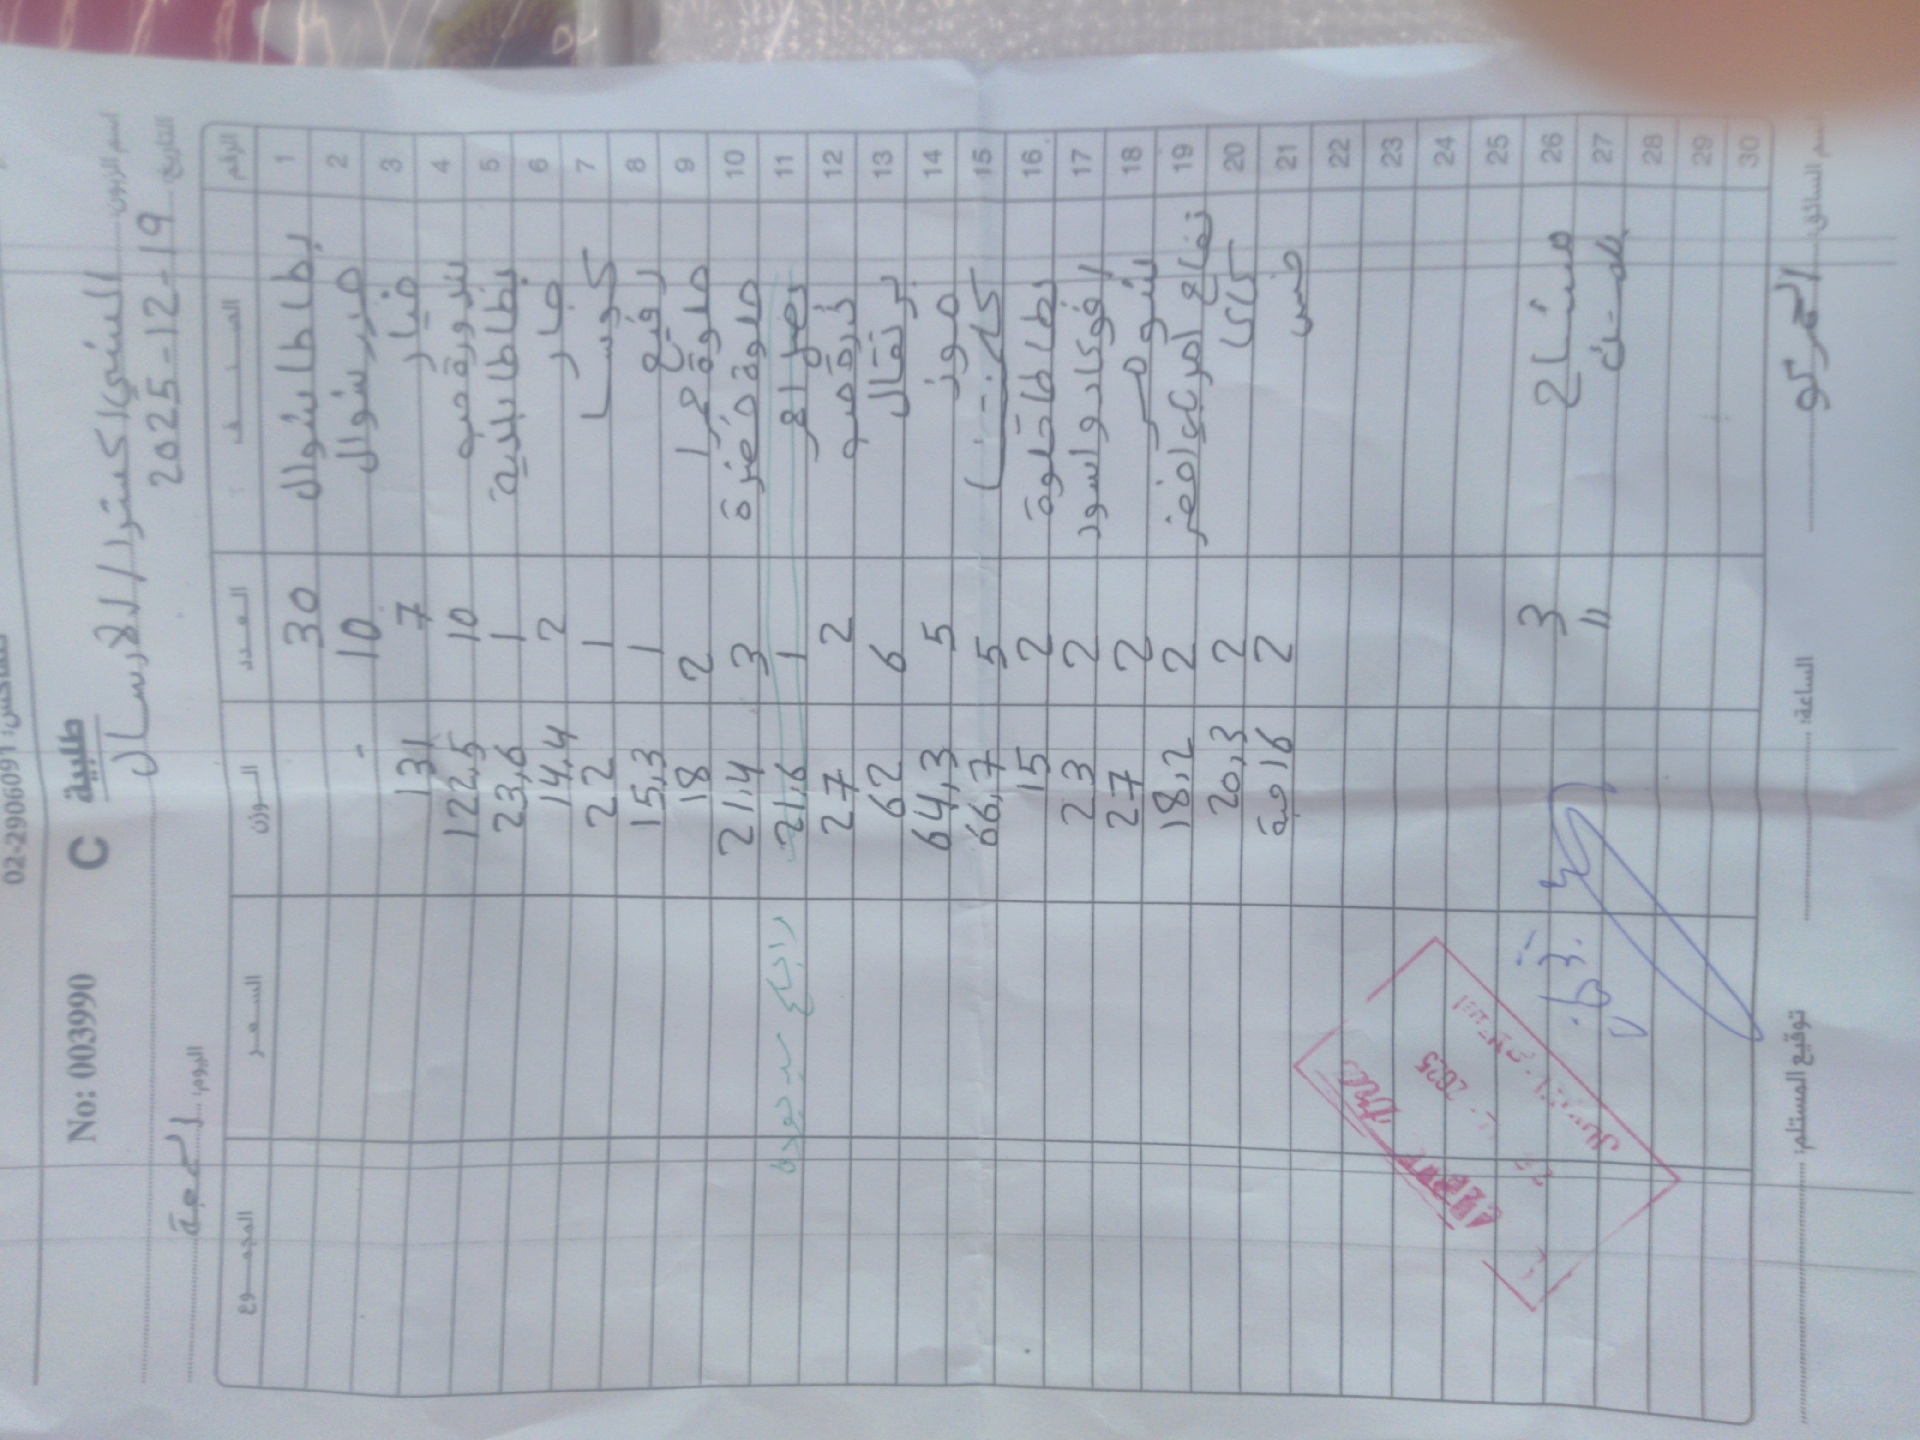 02-2906091
No: 003990 C طلبية
اسم الزبون: الشني اكسترا / الارسال
التاريخ: 2025-12-19 اليوم: الجمعة
الرقم الصنف العدد الوزن السعر المجموع
1 بطاطا شوال 30
2 جزر شوال 10 -
3 خيار 7 131
4 بندورة حبه 10 122,5
5 بطاطا بلدية 1 23,6
6 خيار 2 14,4
7 كوسا 1 22
8 رفيع 1 15,3
9 حلوة حمرا 2 18
10 حلوة خضرة 3 21,4
11 بصل احمر 1 21,6 راجع
12 ذرة حبه 2 27
13 برتقال 6 62
14 موز 5 64,3
15 5 66,7
16 بطاطا حلوة 2 15
17 افوكادو اسود 2 23
18 شومر 2 27
19 تفاح امريكي اخضر 2 18,2
20 كاكا 2 20,3
21 خس 2 16 حبة
22
23
24
25
26 مشتاح 3
27 "
28
29
30
اسم السائق: الساعة: توقيع المستلم:
2025